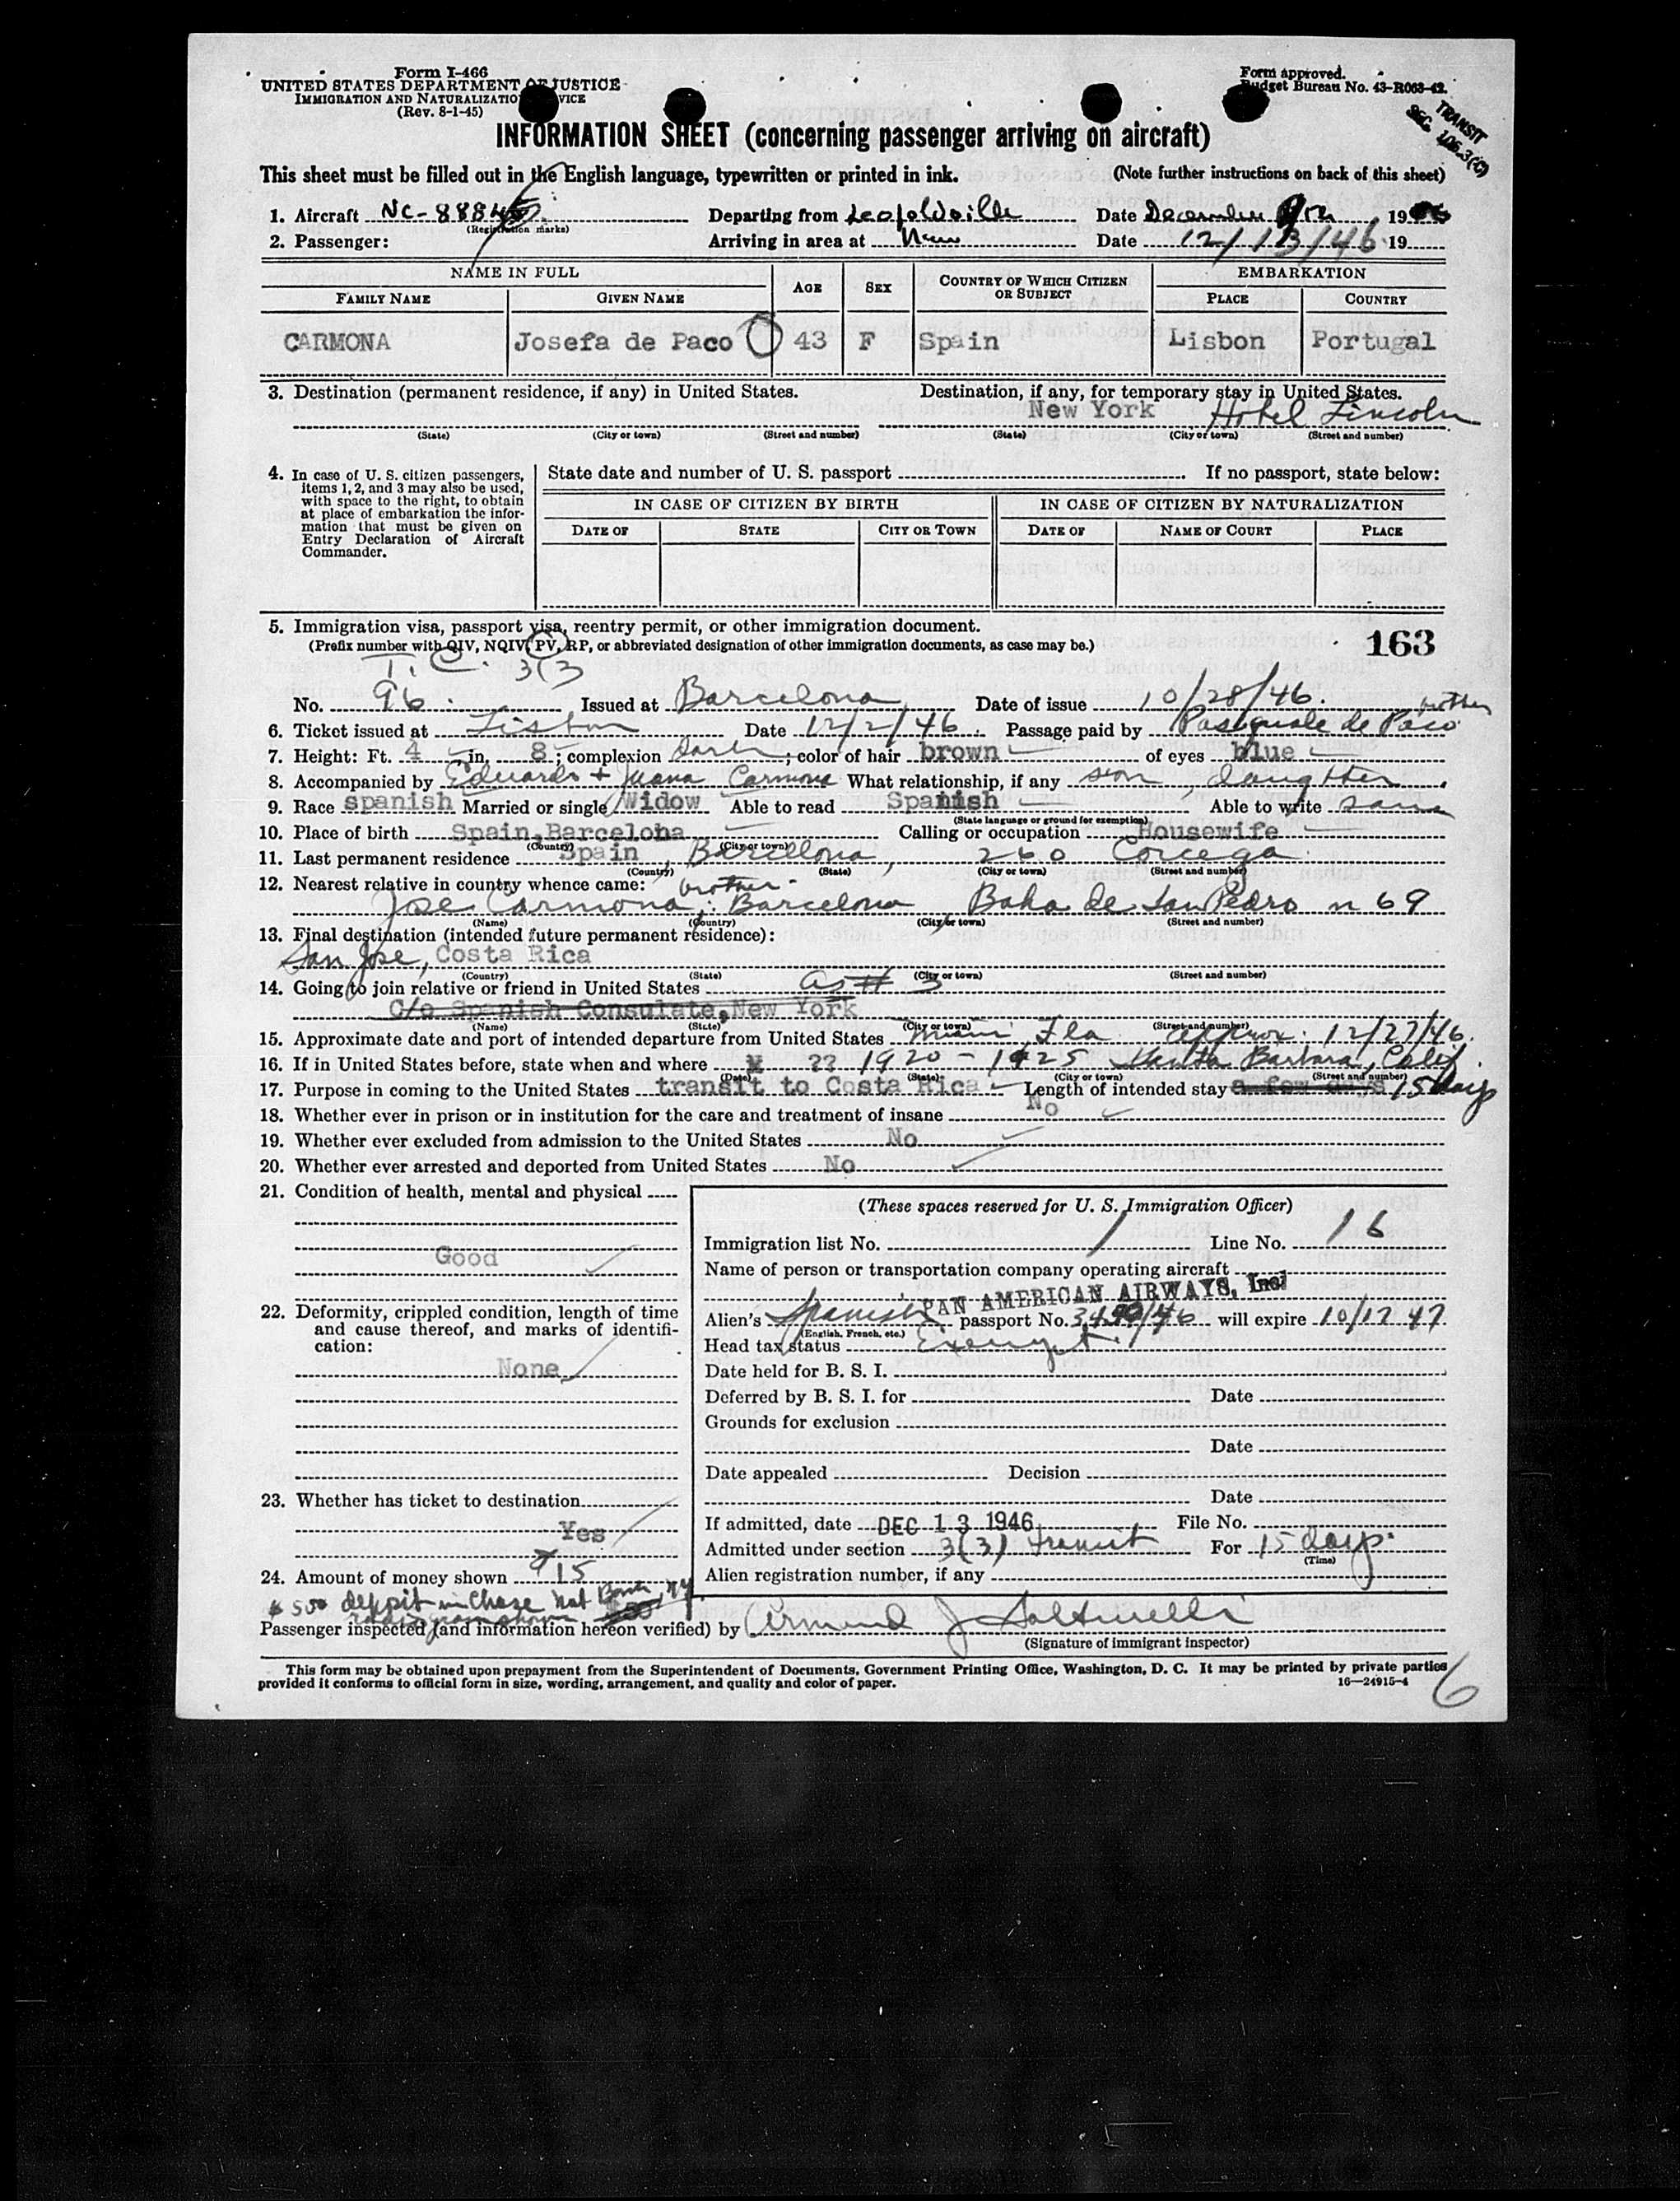 Form I-466
UNITED STATES DEPARTMENT OF JUSTICE
IMMIGRATION AND NATURALIZATION SERVICE
(Rev. 8-1-45)
Form approved.
Budget Bureau No. 43-R063-42.
TRANSIT
SEC. 106.3(C)
INFORMATION SHEET (concerning passenger arriving on aircraft)
This sheet must be filled out in the English language, typewritten or printed in ink. (Note further instructions on back of this sheet)
1. Aircraft NC-8884 Departing from Leopoldville Date December 9th, 19
(Registration marks)
2. Passenger: Arriving in area at Date 12/13/46 19
NAME IN FULL AGE SEX COUNTRY OF WHICH CITIZEN OR SUBJECT EMBARKATION
FAMILY NAME GIVEN NAME PLACE COUNTRY
CARMONA Josefa de Paco 43 F Spain Lisbon Portugal
3. Destination (permanent residence, if any) in United States. Destination, if any, for temporary stay in United States.
New York Hotel Lincoln
(State) (City or town) (Street and number) (State) (City or town) (Street and number)
4. In case of U. S. citizen passengers, items 1, 2, and 3 may also be used, with space to the right, to obtain at place of embarkation the information that must be given on Entry Declaration of Aircraft Commander.
State date and number of U. S. passport If no passport, state below:
IN CASE OF CITIZEN BY BIRTH IN CASE OF CITIZEN BY NATURALIZATION
DATE OF STATE CITY OR TOWN DATE OF NAME OF COURT PLACE
5. Immigration visa, passport visa, reentry permit, or other immigration document.
(Prefix number with QIV, NQIV, PV, RP, or abbreviated designation of other immigration documents, as case may be.) 163
T. C. 3(3
No. 96. Issued at Barcelona Date of issue 10/28/46.
brother
6. Ticket issued at Lisbon Date 12/2/46. Passage paid by Pasquale de Paco
7. Height: Ft. 4 in. 8; complexion dark; color of hair brown of eyes blue
8. Accompanied by Eduardo + Juana Carmona What relationship, if any son, daughter.
9. Race spanish Married or single Widow Able to read Spanish Able to write same
(State language or ground for exemption)
10. Place of birth Spain, Barcelona Calling or occupation Housewife
(Country) (City or town)
11. Last permanent residence Spain, Barcellona, 260 Corcega
(Country) (State) (City or town) (Street and number)
12. Nearest relative in country whence came: brother
Jose Carmona, Barcelona Baha de San Pedro n 69
(Name) (Country) (City or town) (Street and number)
13. Final destination (intended future permanent residence):
San Jose, Costa Rica
(Country) (State) (City or town) (Street and number)
14. Going to join relative or friend in United States as # 3
C/o Spanish Consulate, New York
(Name) (State) (City or town) (Street and number)
15. Approximate date and port of intended departure from United States Miami, Fla approx. 12/27/46.
16. If in United States before, state when and where ?? 1920 - 1925 Santa Barbara, Calif.
(Date) (State) (City or town) (Street and number)
17. Purpose in coming to the United States transit to Costa Rica Length of intended stay a few days 15 days
18. Whether ever in prison or in institution for the care and treatment of insane No
19. Whether ever excluded from admission to the United States No
20. Whether ever arrested and deported from United States No
21. Condition of health, mental and physical
Good
22. Deformity, crippled condition, length of time and cause thereof, and marks of identification:
None
23. Whether has ticket to destination
Yes
24. Amount of money shown $15
$500 deposit in Chase Nat Bank, NY.
radiogram shown $50
(These spaces reserved for U. S. Immigration Officer)
Immigration list No. 1 Line No. 16
Name of person or transportation company operating aircraft
PAN AMERICAN AIRWAYS, Inc.
Alien's Spanish passport No. will expire 10/17 47
(English, French, etc.)
Head tax status Exempt.
Date held for B. S. I.
Deferred by B. S. I. for Date
Grounds for exclusion
Date
Date appealed Decision
Date
If admitted, date DEC 13 1946 File No.
Admitted under section 3(3) transit For 15 days.
(Time)
Alien registration number, if any
Passenger inspected (and information hereon verified) by Armand J Saltinelli
(Signature of immigrant inspector)
This form may be obtained upon prepayment from the Superintendent of Documents, Government Printing Office, Washington, D. C. It may be printed by private parties
provided it conforms to official form in size, wording, arrangement, and quality and color of paper. 16—24915-4
6